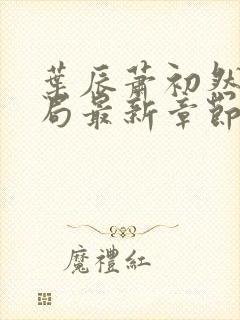 葉辰蕭初然
局最新章節
魔禮紅